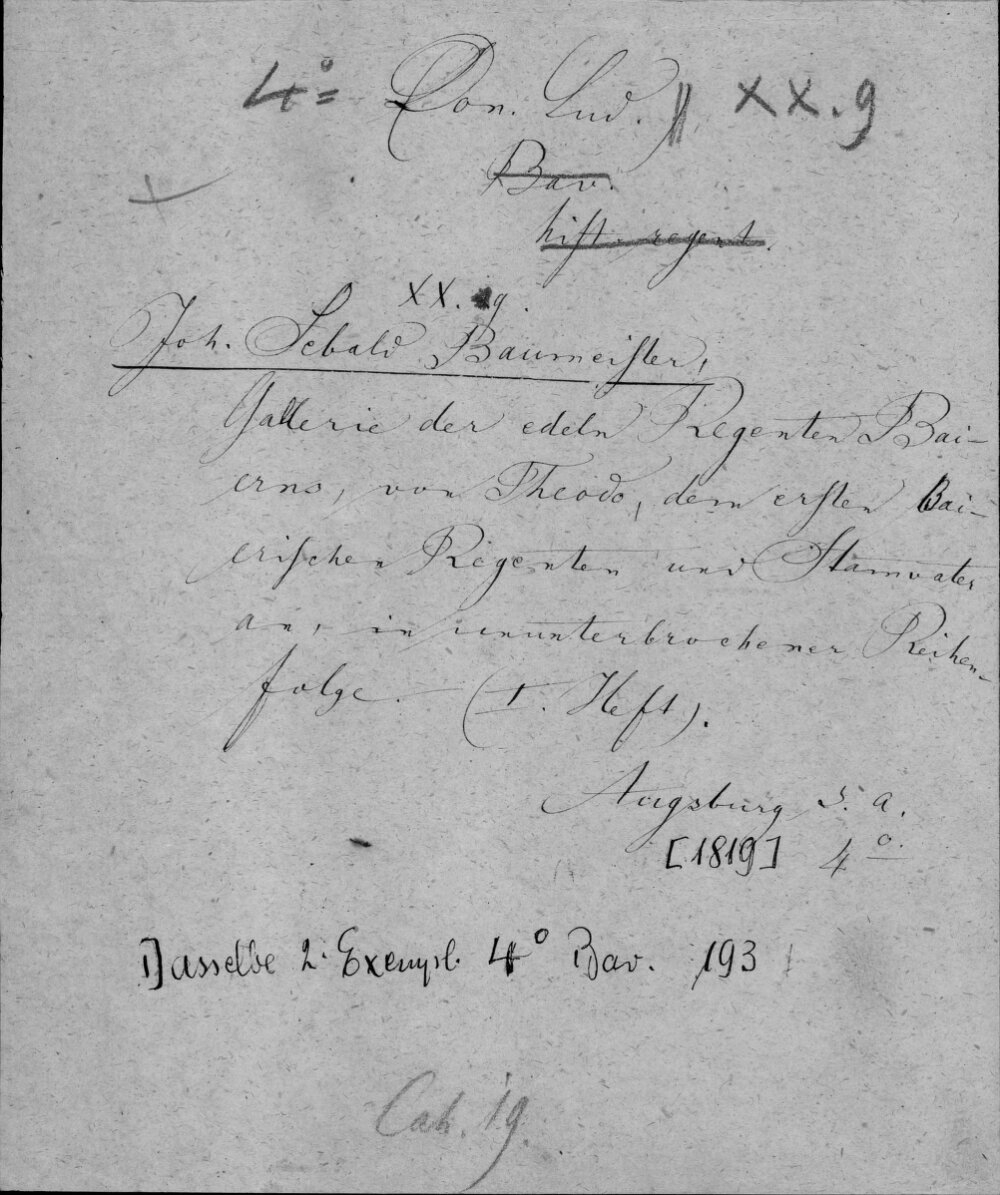 4° Don. Lud. XX. 9
Bav.
hist. regent.
XX. 9.
Joh. Sebald Baumeister,
Gallerie der edeln Regenten Bai-
erns, von Theodo, dem ersten Bai-
erischen Regenten und Stamvater
an, in ununterbrochener Reihen-
folge. (I. Heft).
Augsburg s. a.
[1819] 4°.
Dasselbe 2. Exempl. 4° Bav. 193
Cah. 19.